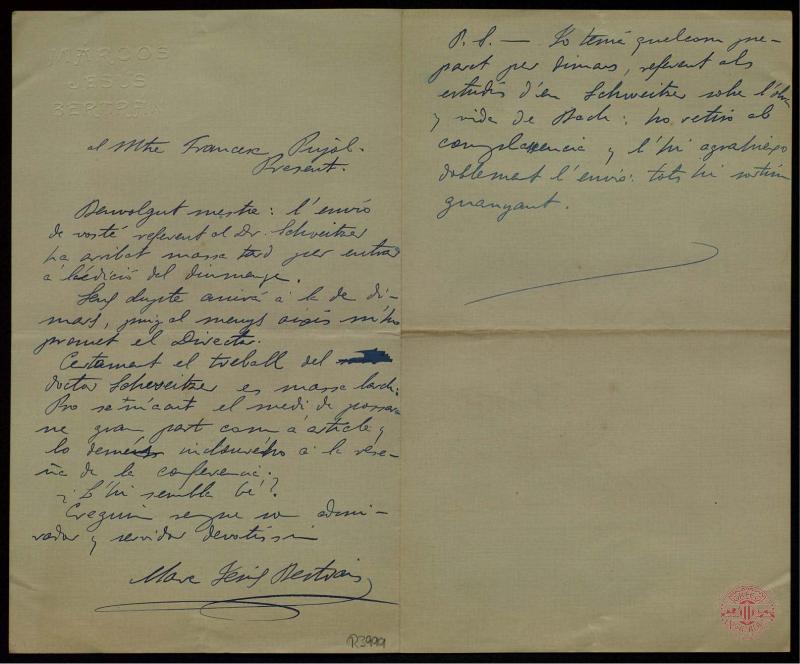 MARCOS
JESÚS
BERTRÁN
al Mtre Francesc Pujol.
Present.
Benvolgut mestre: l'envio
de vosté referent al Dr. Schweitzer
ha arribat massa tard per entrar
a l'edició del diumenge.
Sens dupte anirá á la de di-
mars, puig al menys aixís m'ho
promet el Director.
Certament el treball del
doctor Schweitzer es massa llarch.
Pro el medi de possar-
ne gran part com á article y
lo demés inclourého á la rese-
ña de la conferencia.
¿L'hi sembla bé?
Creguim sempre son admi-
rador y servidor devotíssim
Marc Jesús Bertran
P. S. — Jo tenía quelcom pre-
parat per dimars, referent als
estudis d'en Schweitzer sobre l'obra
y vida de Bach: ho retiro ab
complacencia y l'hi agraheixo
doblement l'envio: tots hi sortim
guanyant.
R3999